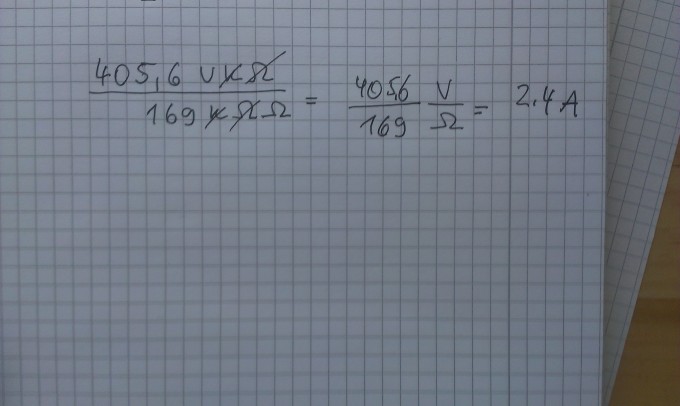 405,6 VKΩ / 169 KΩΩ = 405,6 / 169 V / Ω = 2.4 A